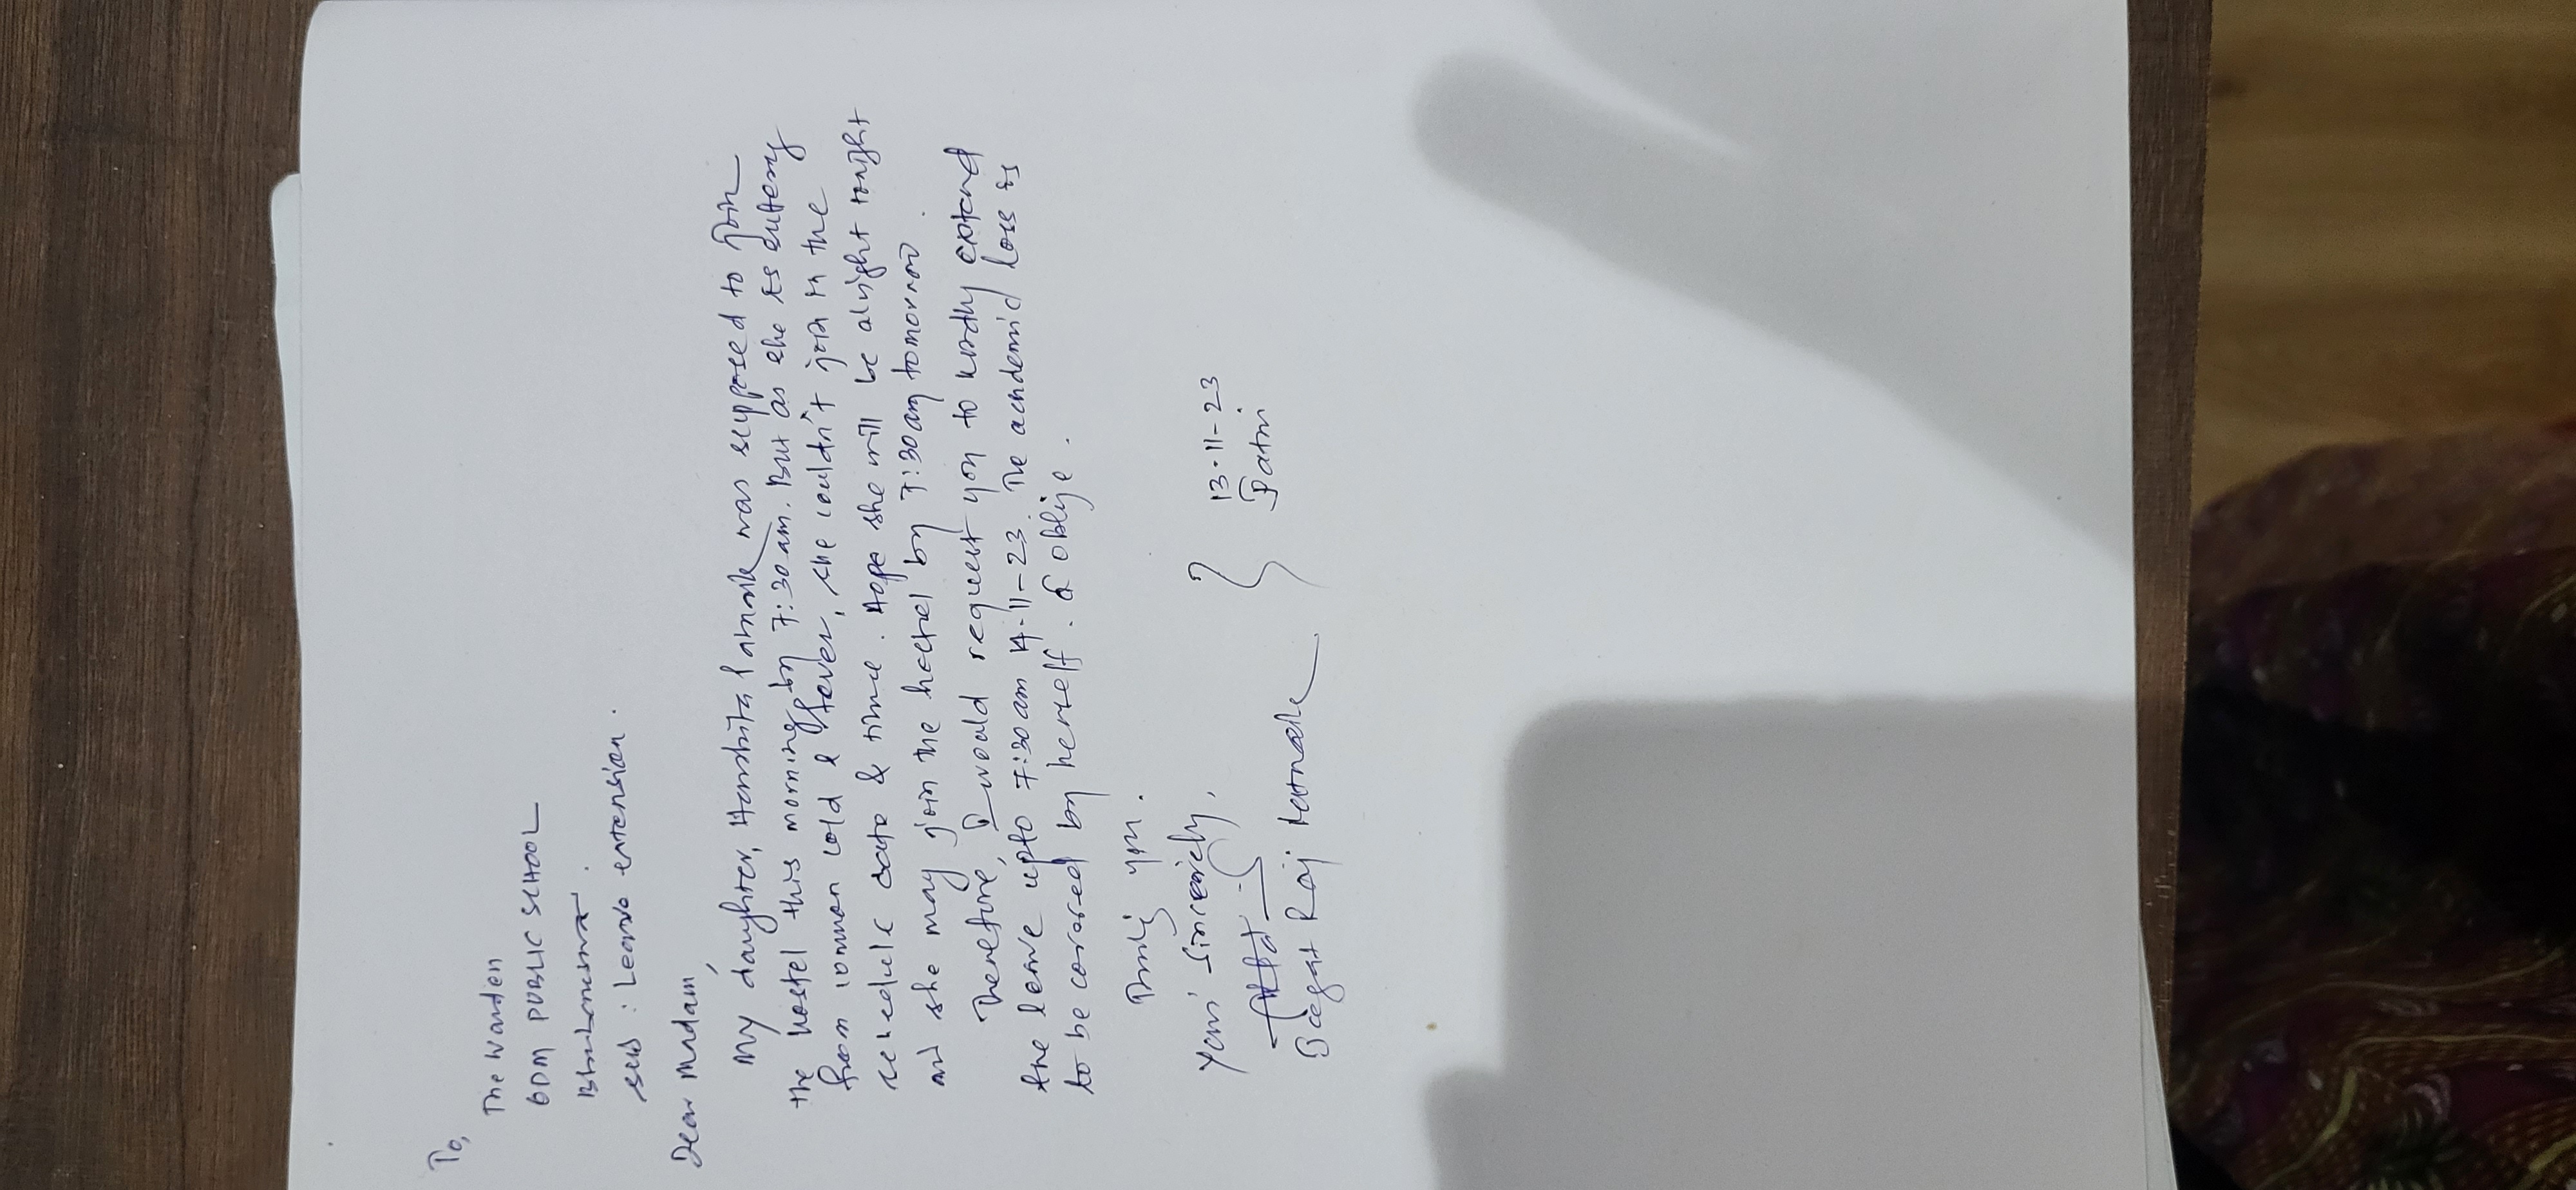 To,
The Warden
BDM PUBLIC SCHOOL
Sub : Leave extension.
Dear Madam,
My daughter, was supposed to join
the hostel this morning by 7:30 am. But as she is suffering
from common cold & fever, she couldn't join in the
schedule date & time. Hope she will be alright tonight
and she may join the hostel by 7:30 am tomorrow.
Therefore, I would request you to kindly extend
the leave upto 7:30 am 14-11-23. The academic loss is
to be covered by herself. & oblige.
Thank you.
Yours Sincerely,
Raj
13-11-23